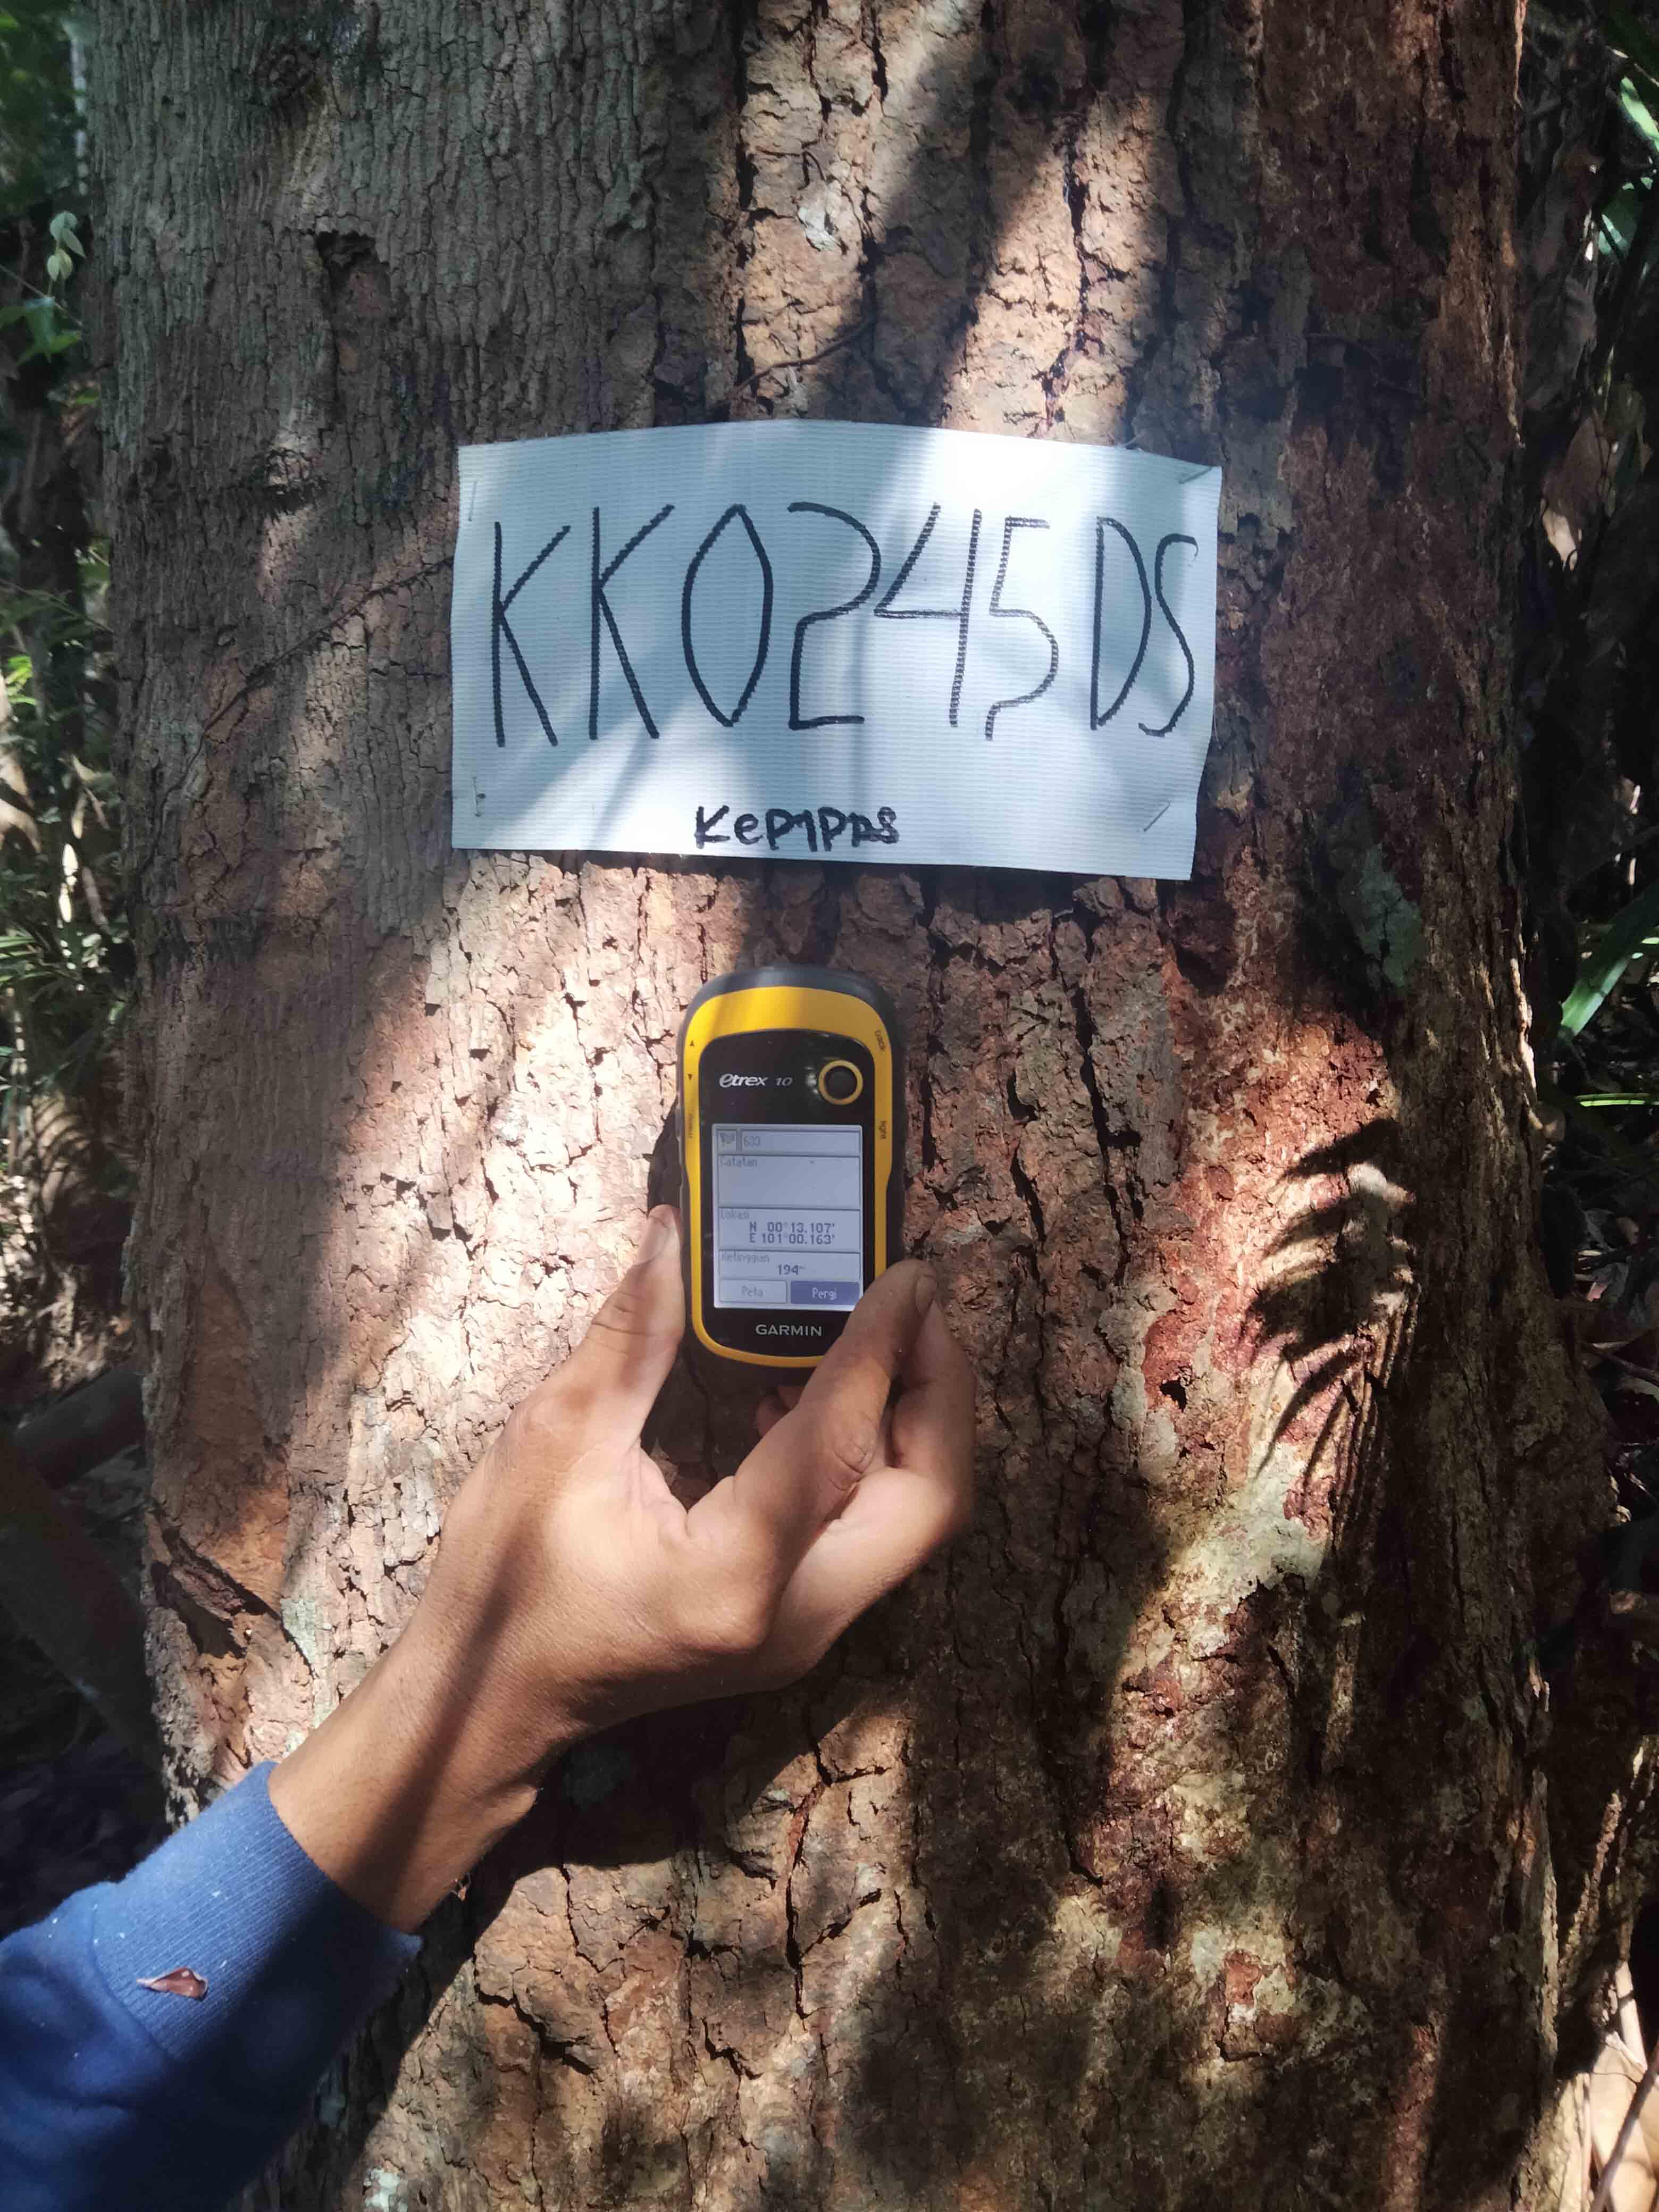 KK0245 DS
Kepipas
etrex 10
630
Catatan
Lokasi
N 00°13.107'
E 101°00.163'
Ketinggian
194m
Peta Pergi
GARMIN
back
light